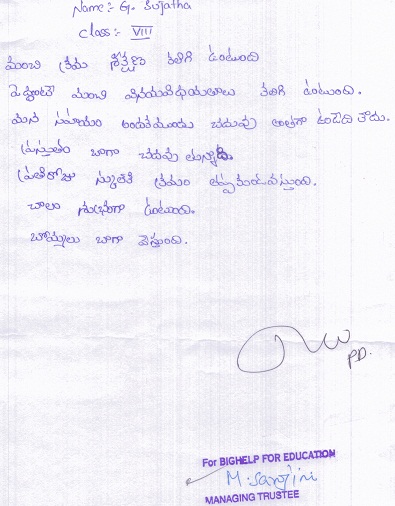 Name:- G. Sujatha
Class:- VIII
మంచి క్రమ శిక్షణ కలిగి ఉంటుంది
పెద్దలంటే మంచి వినయవిధేయతలు కలిగి ఉంటుంది.
మన సహాయం అందకముందు చదువు అంతగా ఉండేది కాదు.
ప్రస్తుతం బాగా చదువుతున్నది.
ప్రతిరోజు స్కూలుకి క్రమం తప్పకుండవస్తుంది.
చాలా శుభ్రంగా ఉంటుంది.
బొమ్మలు బాగా వేస్తుంది.
P.D.
For BIGHELP FOR EDUCATION
M. Sanjini
MANAGING TRUSTEE